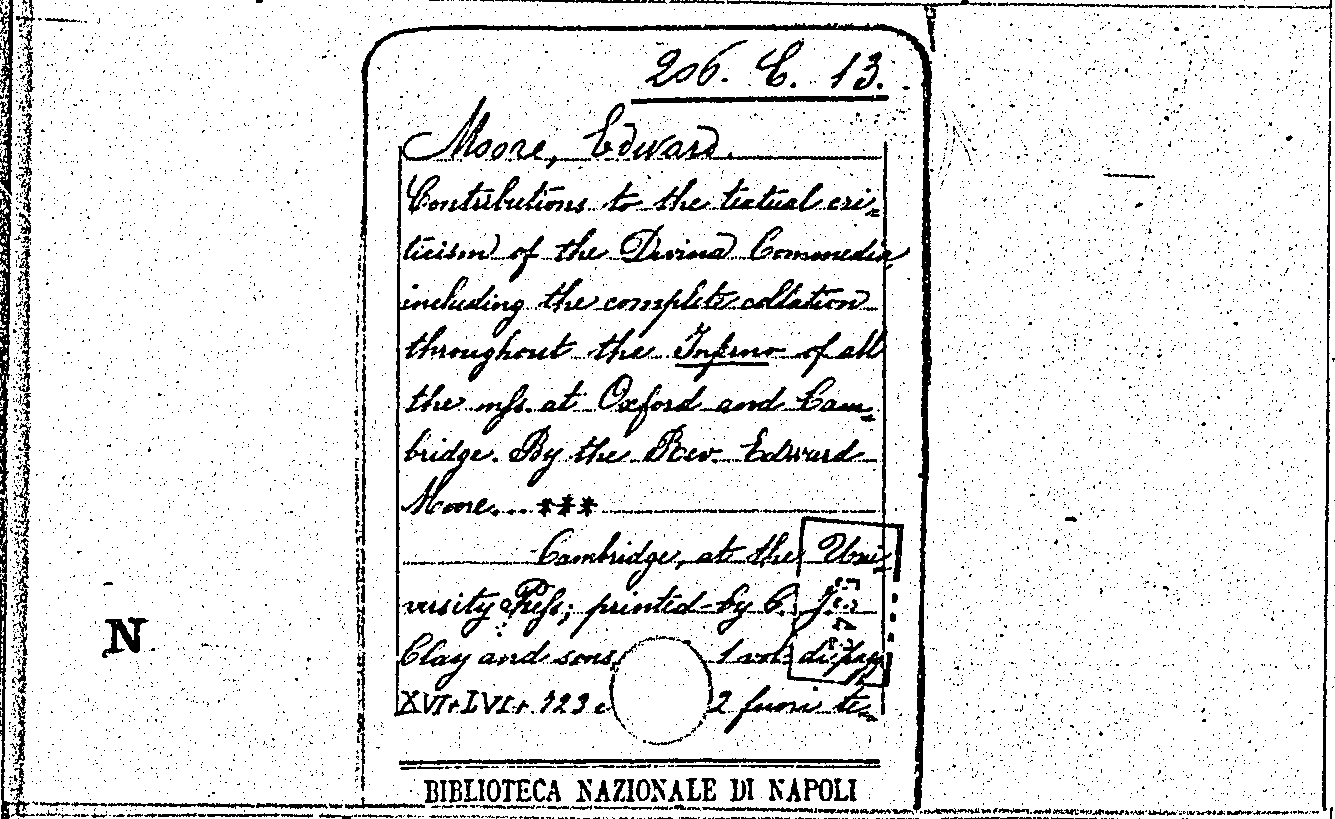 206. C. 13.
Moore, Edward.
Contributions to the textual cri-
ticism of the Divina Commedia,
including the complete collation
throughout the Inferno of all
the mss. at Oxford and Cam-
bridge. By the Rev. Edward
Moore... ***
Cambridge, at the Uni-
versity Press; printed by C. J.
Clay and sons, 1 vol. di pag.
XVI+LVI+723 e 2 fuori te-
N
BIBLIOTECA NAZIONALE DI NAPOLI